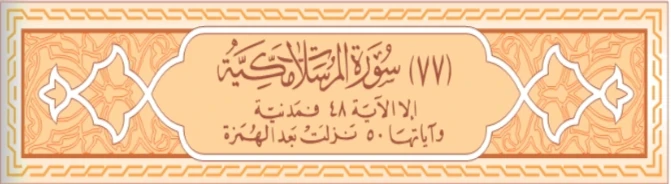 (٧٧) سُورَةُ المُرْسَلَاتِ مَكِيَّةٌ
إلا الآية ٤٨ فمدنية
وآياتها ٥٠ نزلت بعد الهمزة